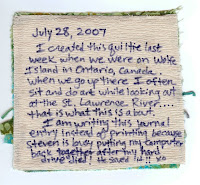 July 28, 2007
I created this quiltie last
week when we were on Wolfe
Island in Ontario, Canada.
When we go up there I often
sit and do art while looking out
at the St. Lawrence River....
that is what this is about.
I am writing this journal
entry instead of printing because
steven is busy putting my computer
back together after my hard
drive died! He saved it!! xo